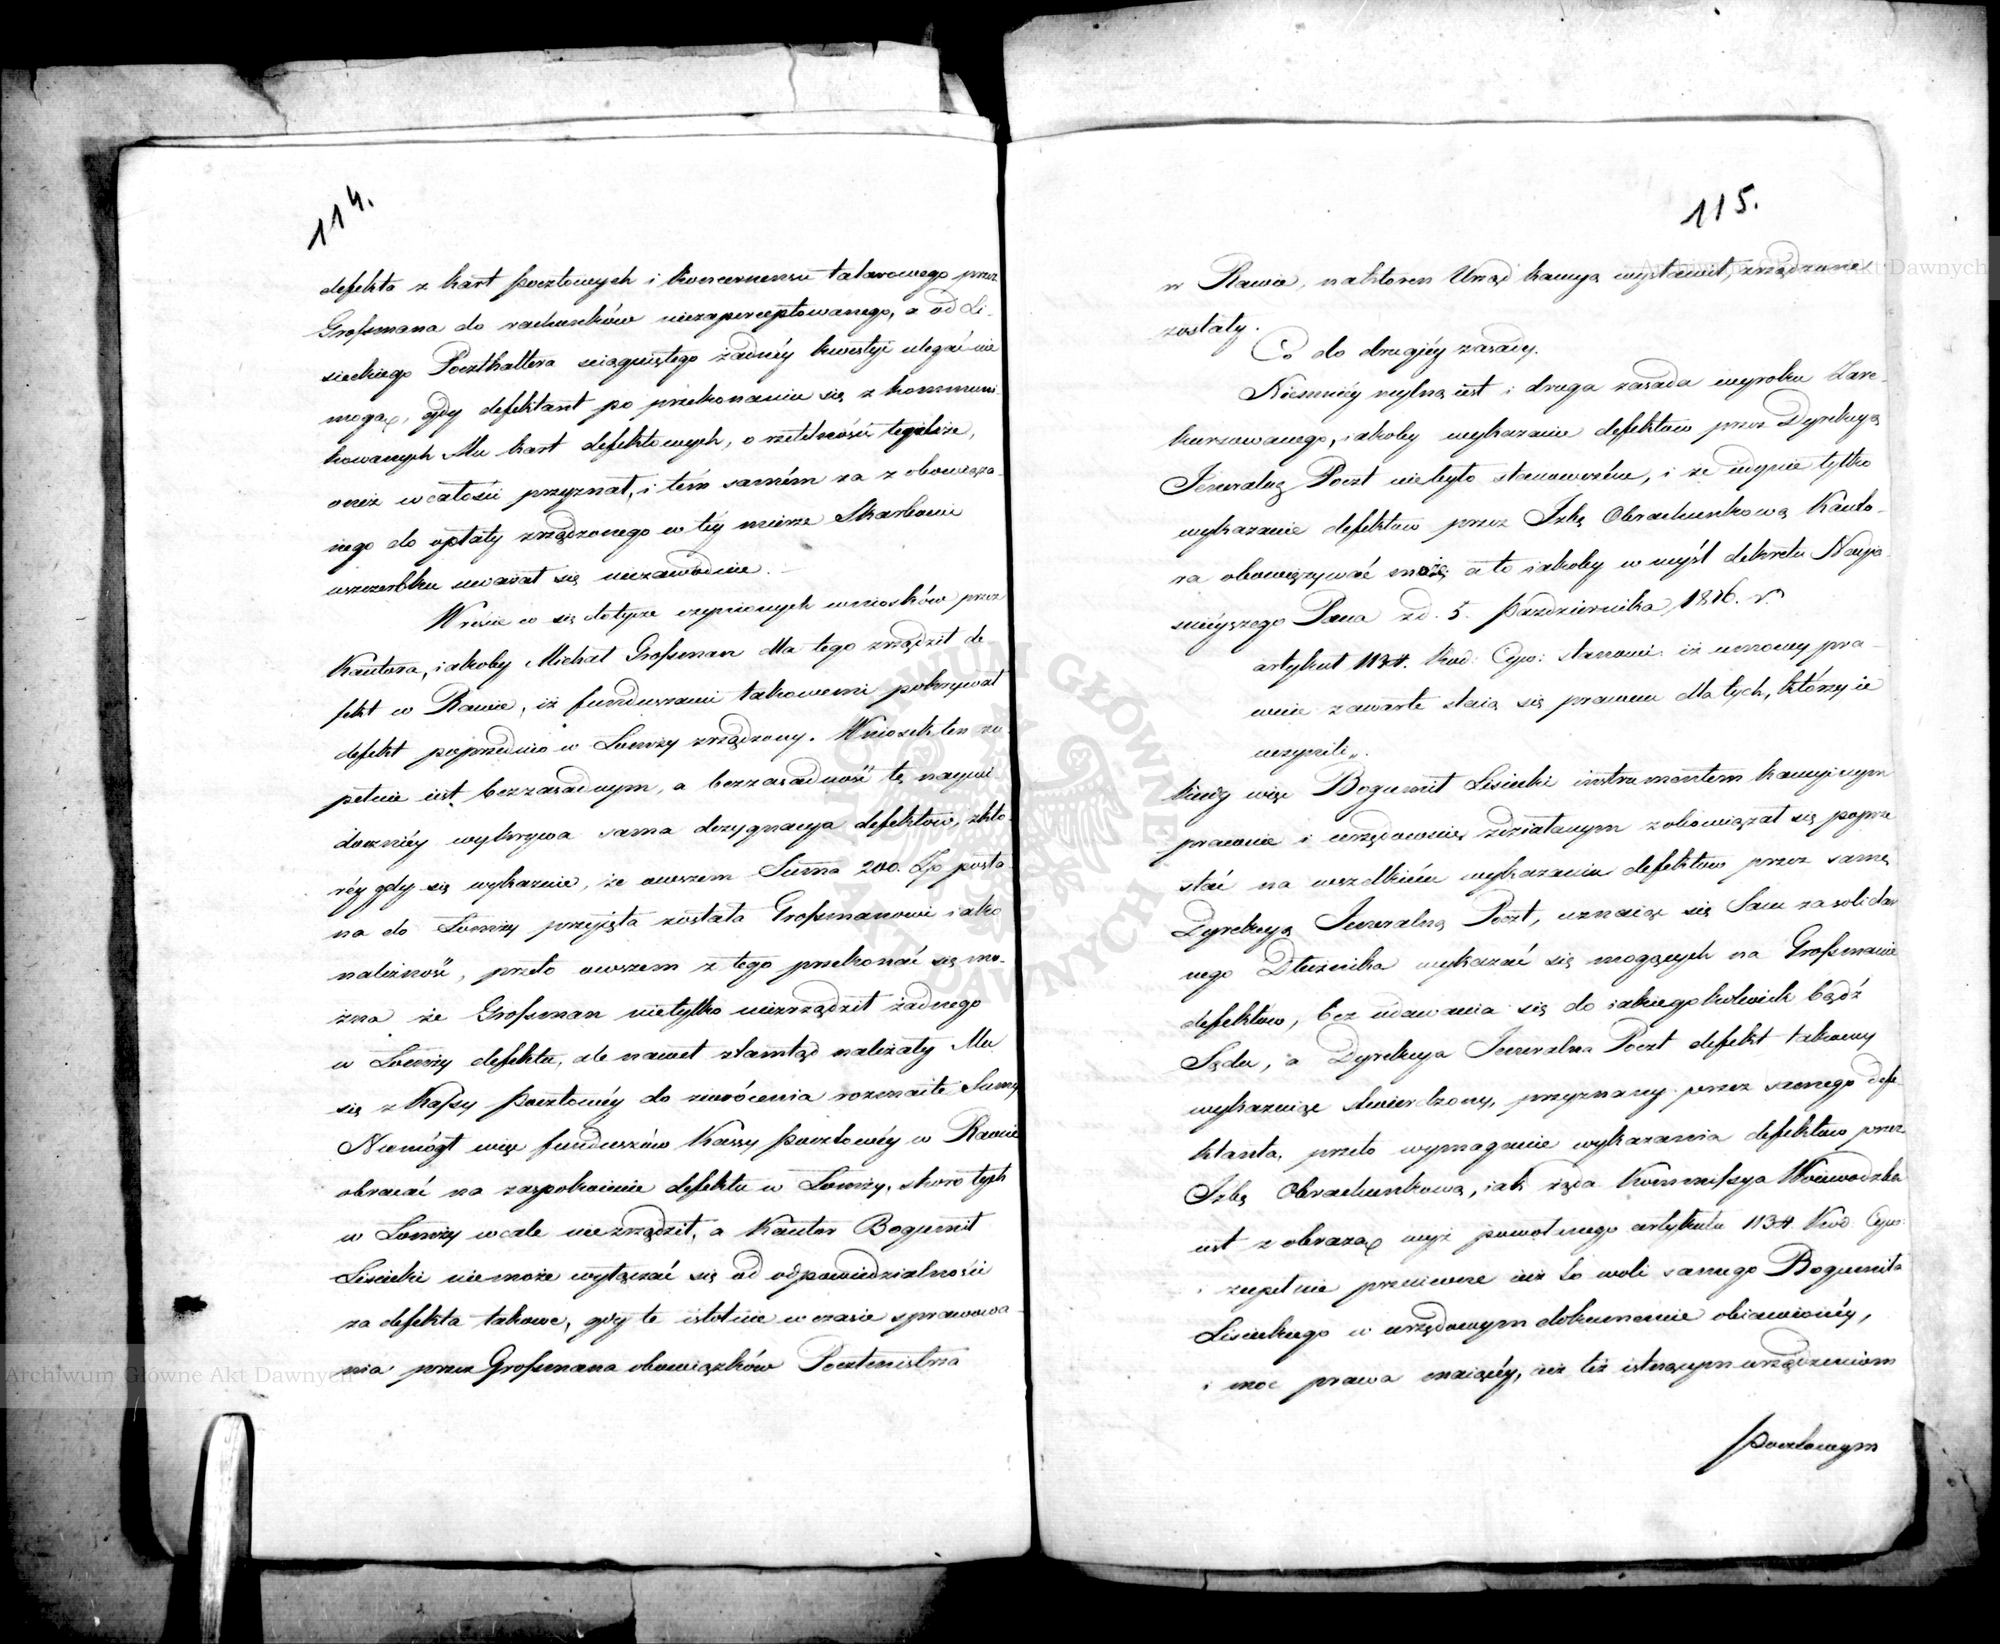 114.
defekta z kart pocztowych i koncernensu talarowego przez
Großmana do rachunków niezaperceptowanego, a od Li-
sieckiego Poczthaltera sciągniętego żadnéy kwestyi ulegać nie
mogą, gdy defektant po przekonaniu się z kommuni-
kowanych Mu kart defektowych, o rzetelności tegoż
oneż w całości przyznał, i tém samém za zobowiąza-
nego do opłaty zrządzonego w téy mierze Skarbowi
uszczerbku uważał się niezawodnie.
Wresie co się dotycze czynionych wniosków przez
Kautora, iakoby Michał Großman dla tego zrządził de-
fekt w Rawie, iż funduszami takowemi pokrywał
defekt poprzednio w Łomży zrządzony. Wniosek ten zu-
pełnie iest bezzasadnym, a bezzasadność tę naywi-
doczniéy wykrywa sama dezygnacya defektów, z któ-
réy gdy się wykazuie, że owszem Suma 200. Zp posta-
na do Łomży przyięta została Großmanowi iako
należność, przeto owszem z tego przekonać się mo-
żna że Großman nietylko niezrządził żadnego
w Łomży defektu, ale nawet ztamtąd należały Mu
się z Kaßy pocztowéy do zwrócenia rozmaite Sumy
Niemógł więc funduszów Kassy pocztowéy w Rawie
obracać na zaspokoienie defektu w Łomży, skoro tych
w Łomży wcale niezrządził, a Kautor Bogumił
Lisiecki nie może wyłączać się od odpowiedzialności
za defekta takowe, gdy te istotnie w czasie sprawowa-
nia przez Großmana obowiązków Pocztmistrza
115.
w Rawie, na którem Urząd kaucyą wystawił, zrządzone
zostały.
Co do drugiéy zasady.
Niemniéy mylną iest i druga zasada wyroku zare-
kursowanego, iakoby wykazanie defektów przez Dyrekcyą
Jeneralną Poczt niebyło stanowczém, i że iedynie tylko
wykazanie defektów przez Izbę Obrachunkową Kauto-
ra obowiązywać może, a to iakoby w myśl dekretu Nayia-
śnieyszego Pana z d. 5. Października 1816. r.
artykuł 1134. Kod: Cyw: stanowi: iż umowy pra-
wnie zawarte staią się prawem dla tych, którzy ie
uczynili„.
kiedy więc Bogumił Lisiecki instrumentem kaucyinym
prawnie i urzędownie zdziałanym zobowiązał się poprze-
stać na wszelkiém wykazaniu defektów przez samę
Dyrekcyą Jeneralną Poczt, uznaiąc się Sam za solidar-
nego Dłużnika wykazać się mogących na Großmanie
defektów, bez udawania się do iakiegokolwiek bądź
Sądu, a Dyrekcya Jeneralna Poczt defekt takowy
wykazuiąc stwierdzony, przyznany przez samego defe-
ktanta, przeto wymaganie wykazania defektów przez
Izbę Obrachunkową, iak żąda Kommißya Woiewodzka
iest z obrazą wyż powołnego artykułu 1134. Kod: Cyw:
i zupełnie przeciwne iuż to woli samego Bogumiła
Lisieckiego w urzędowym dokumencie obiawionéy,
i moc prawa maiącéy, iuż też istnącym urządzeniom
pocztowym